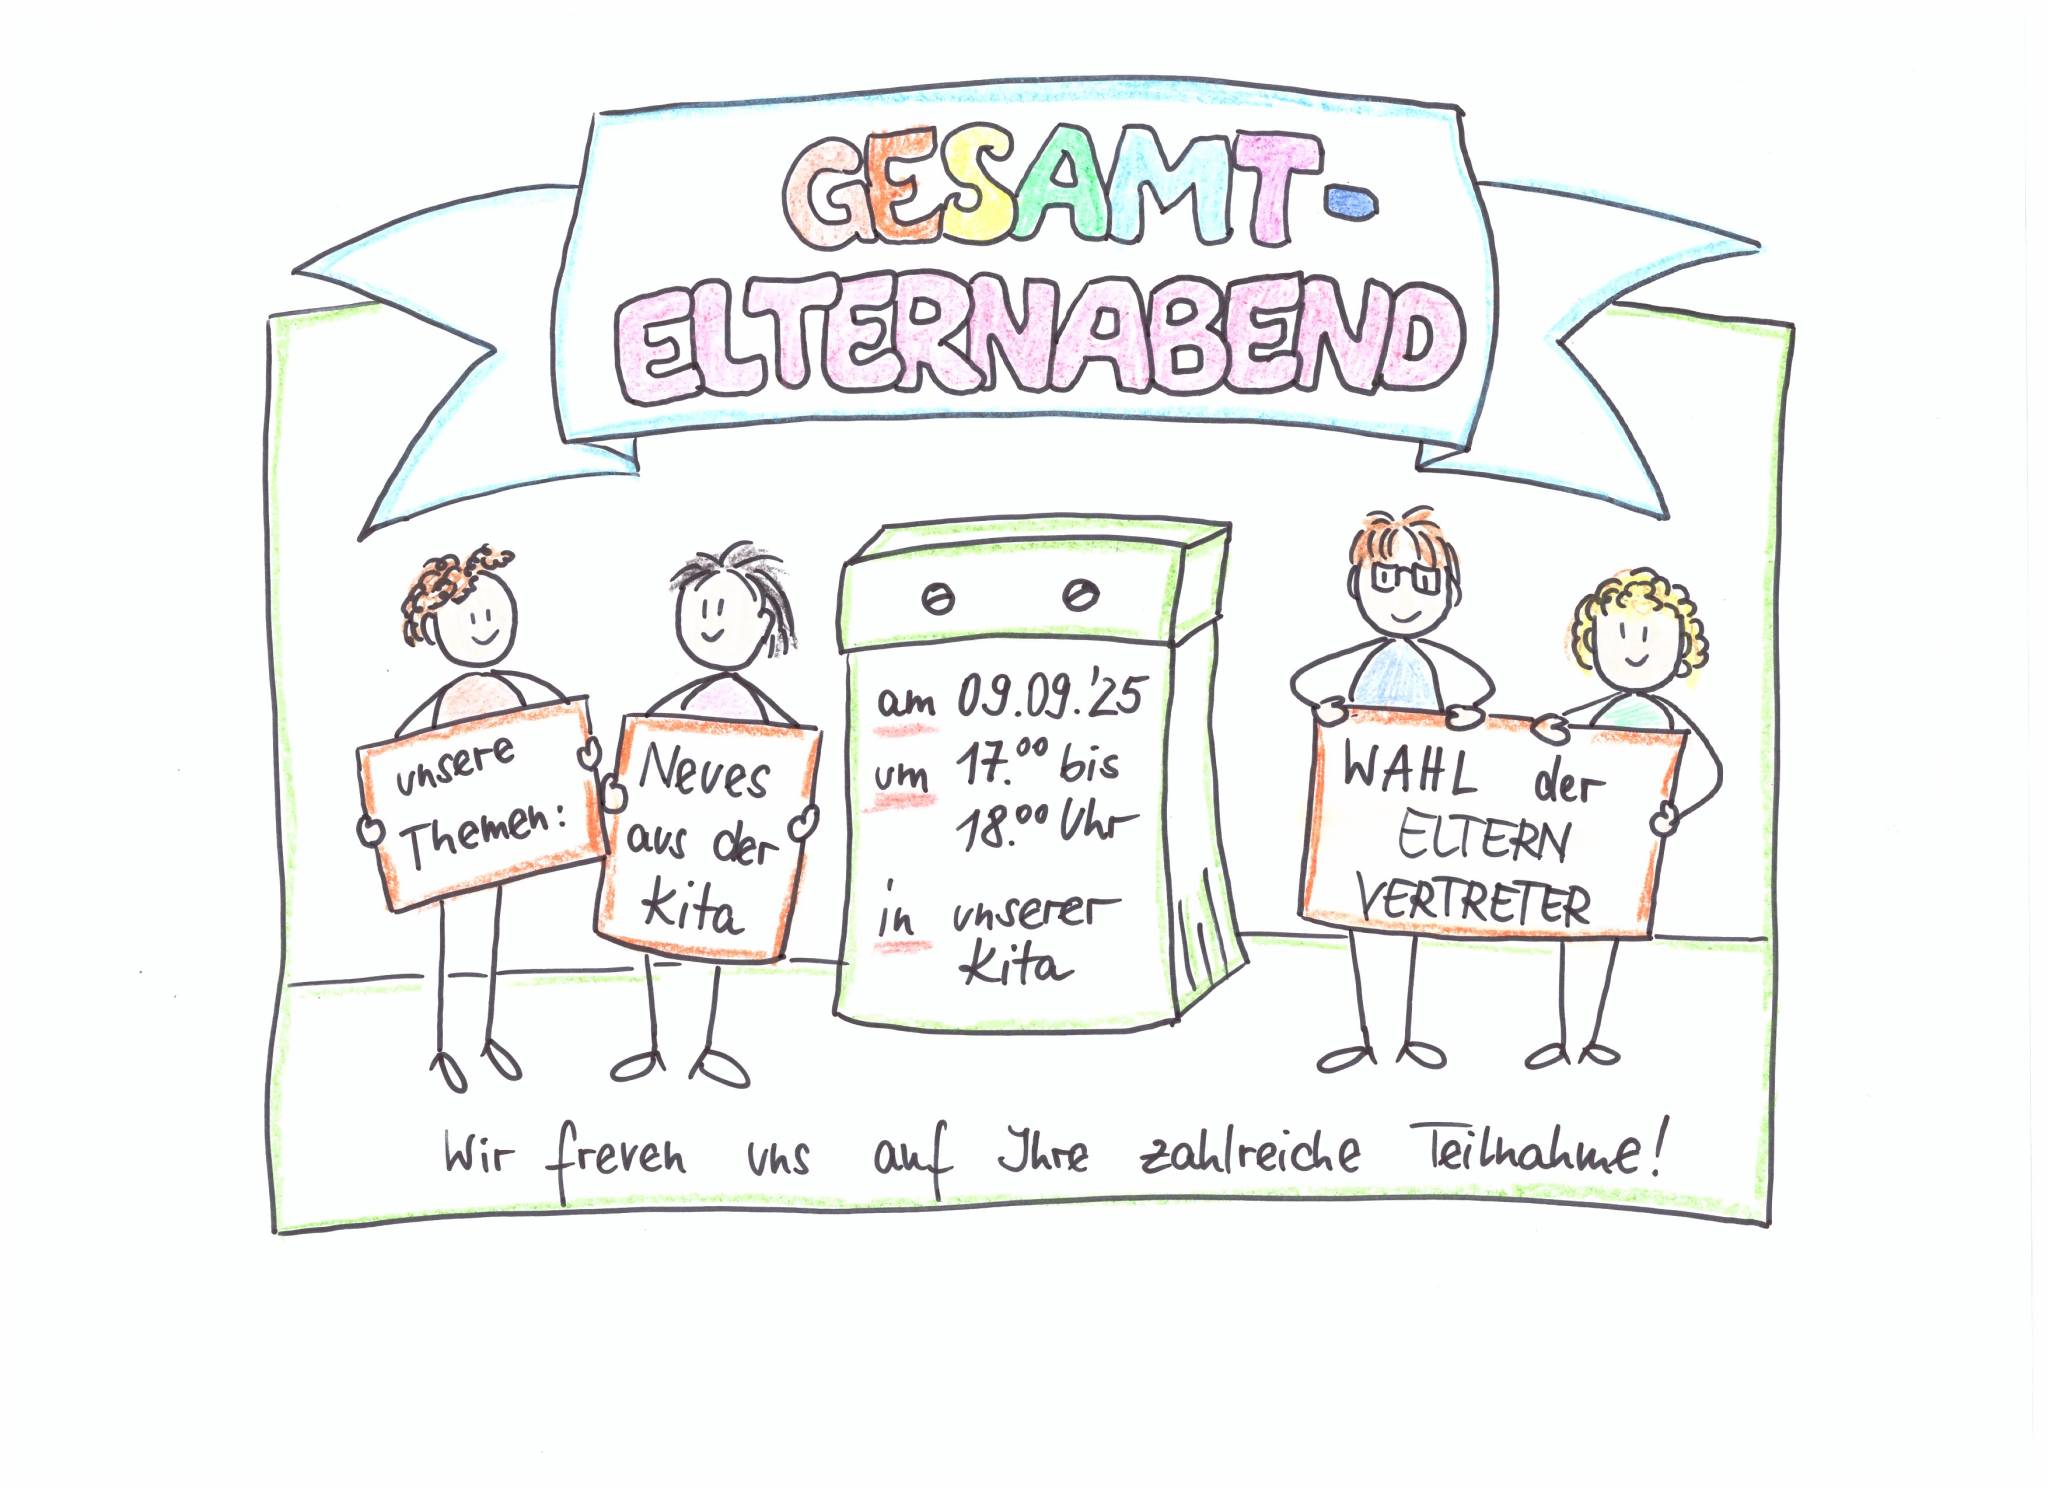 GESAMT-
ELTERNABEND
unsere
Themen:
Neues
aus der
Kita
am 09.09.'25
um 17.00 bis
18.00 Uhr
in unserer
Kita
WAHL der
ELTERN
VERTRETER
Wir freuen uns auf Ihre zahlreiche Teilnahme!